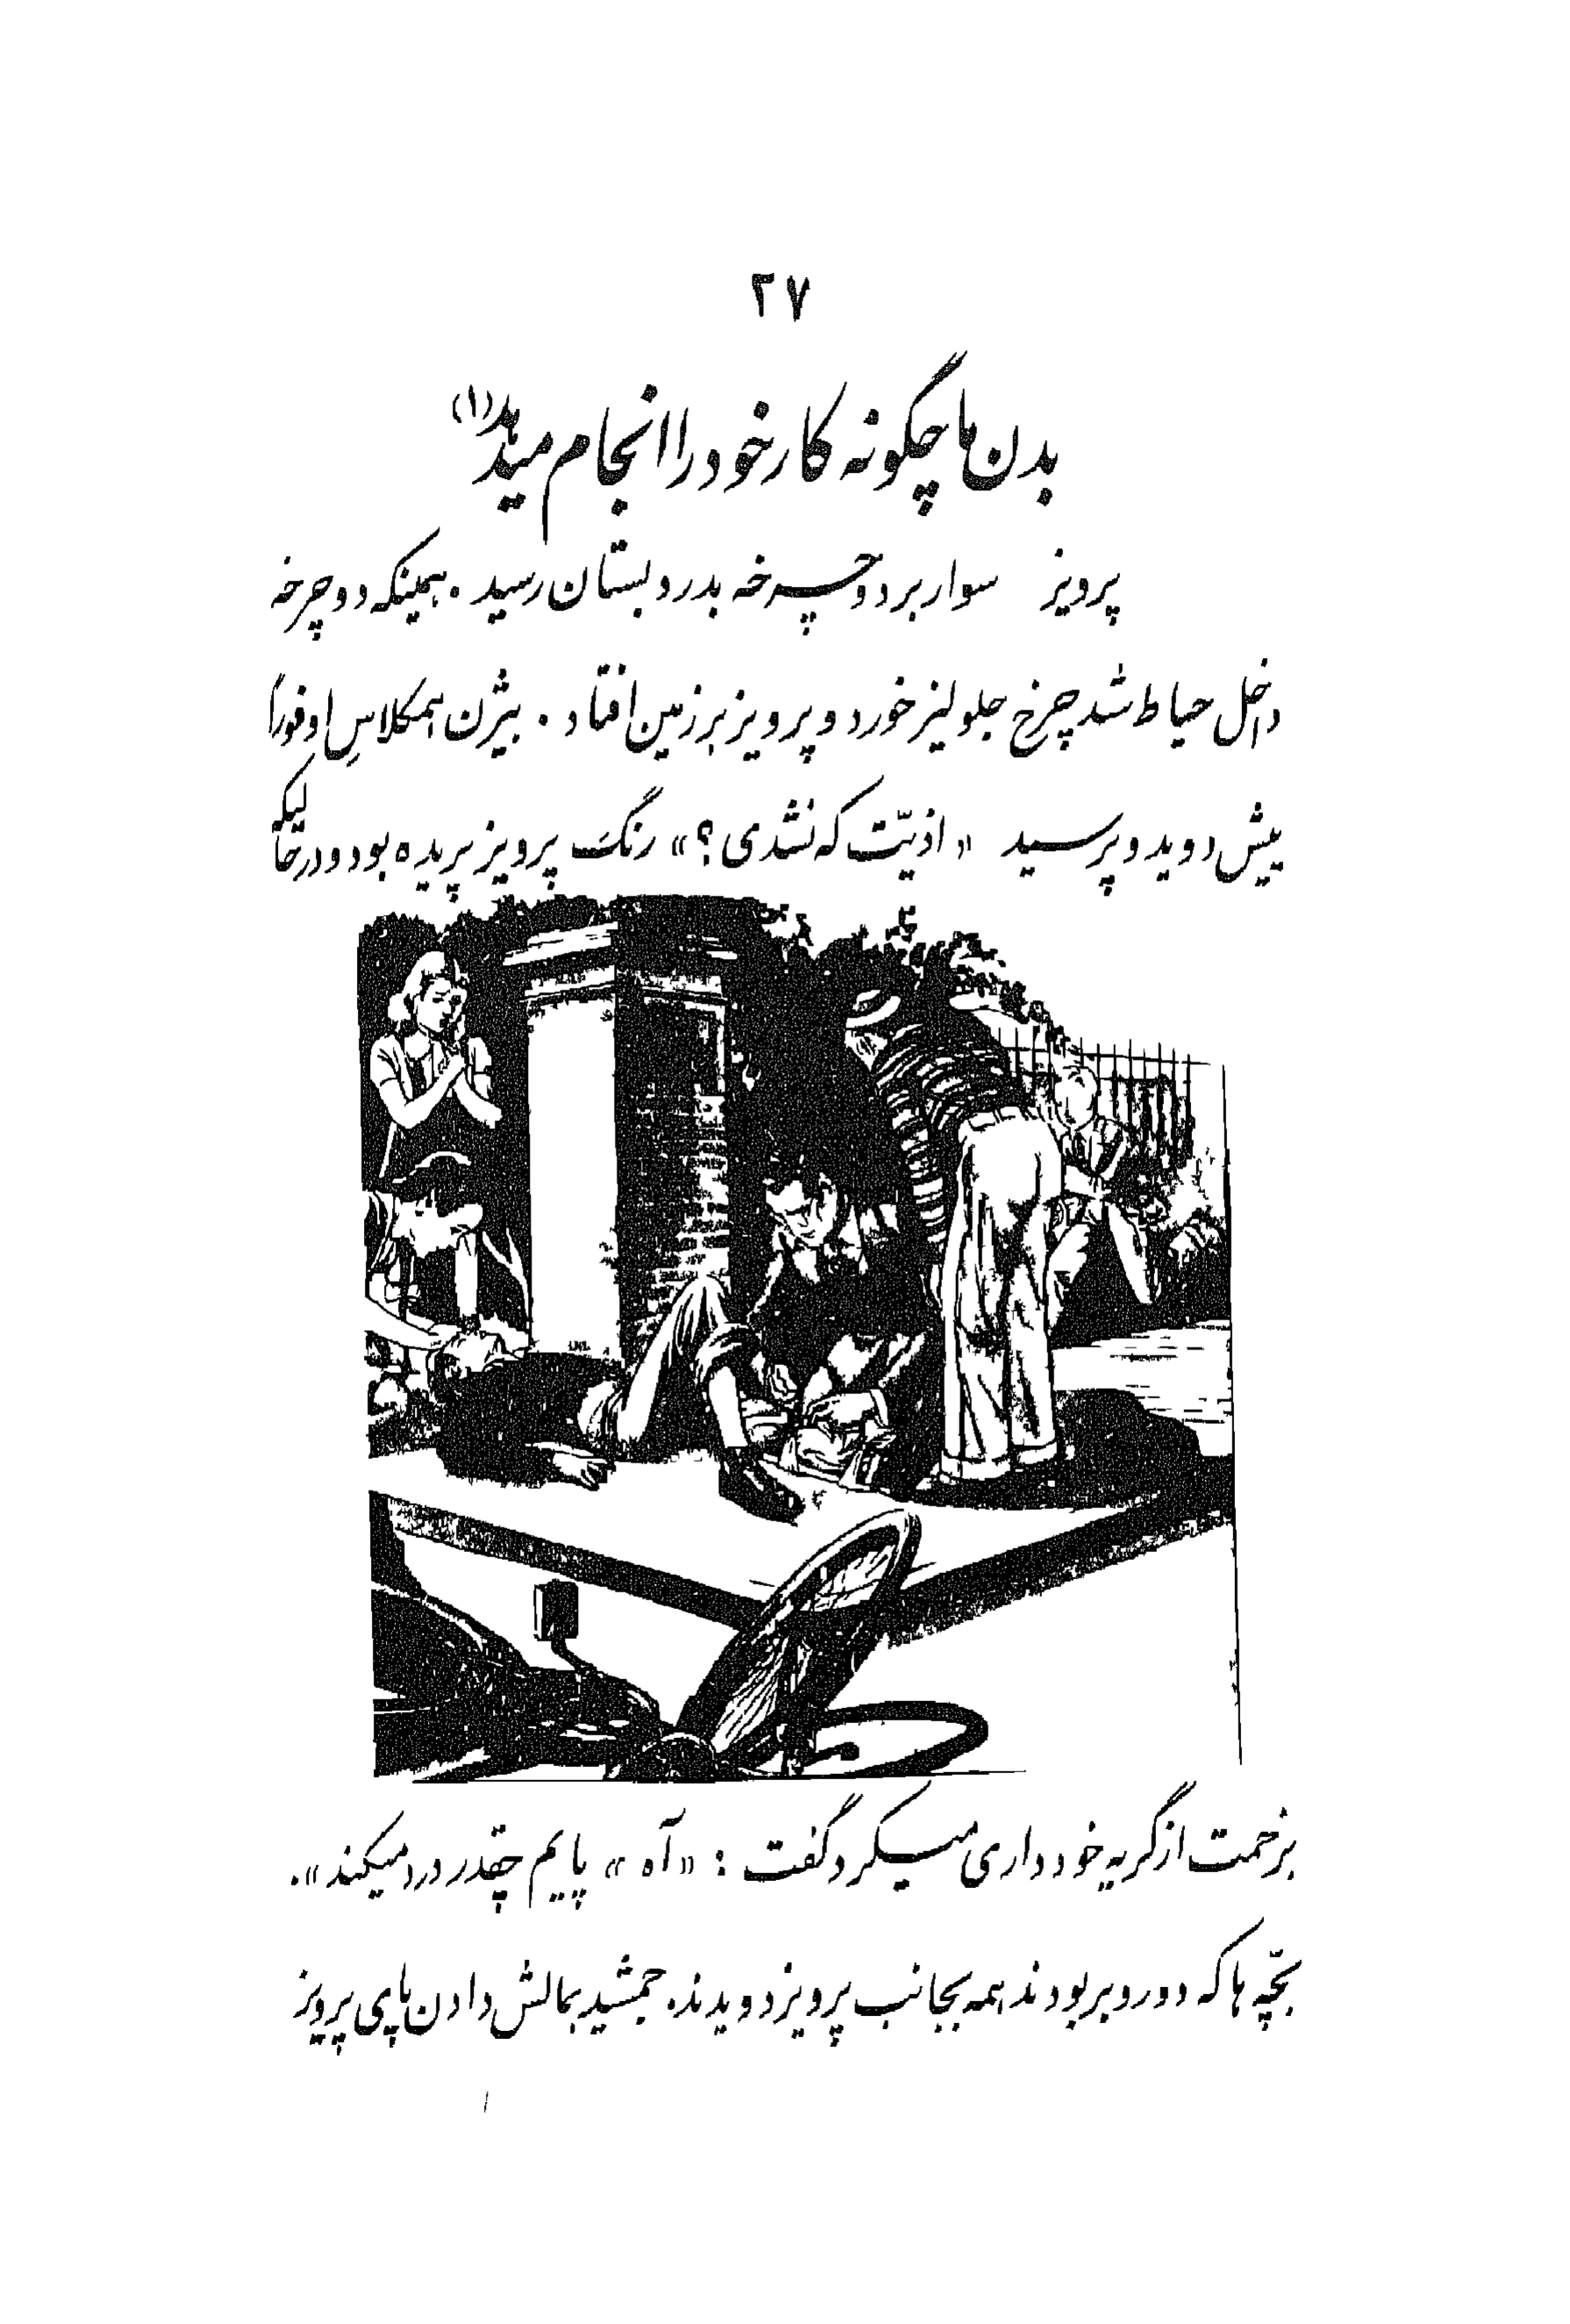 ۲۷
بدن ما چگونه کار خود را انجام میدهد (۱)
پرویز سوار بر دوچرخه بدر دبستان رسید. همینکه دوچرخه
داخل حیاط شد چرخ جلو لیز خورد و پرویز بر زمین افتاد. بیژن همکلاسِ او فوراً
پیش دوید و پرسید «اذیّت که نشدی؟» رنگ پرویز پریده بود و درحالیکه
بزحمت از گریه خودداری میکرد گفت: «آه» پایم چقدر درد میکند».
بچّه ها که دور و بر بودند همه بجانب پرویز دویدند. جمشید بمالش دادن پای پرویز